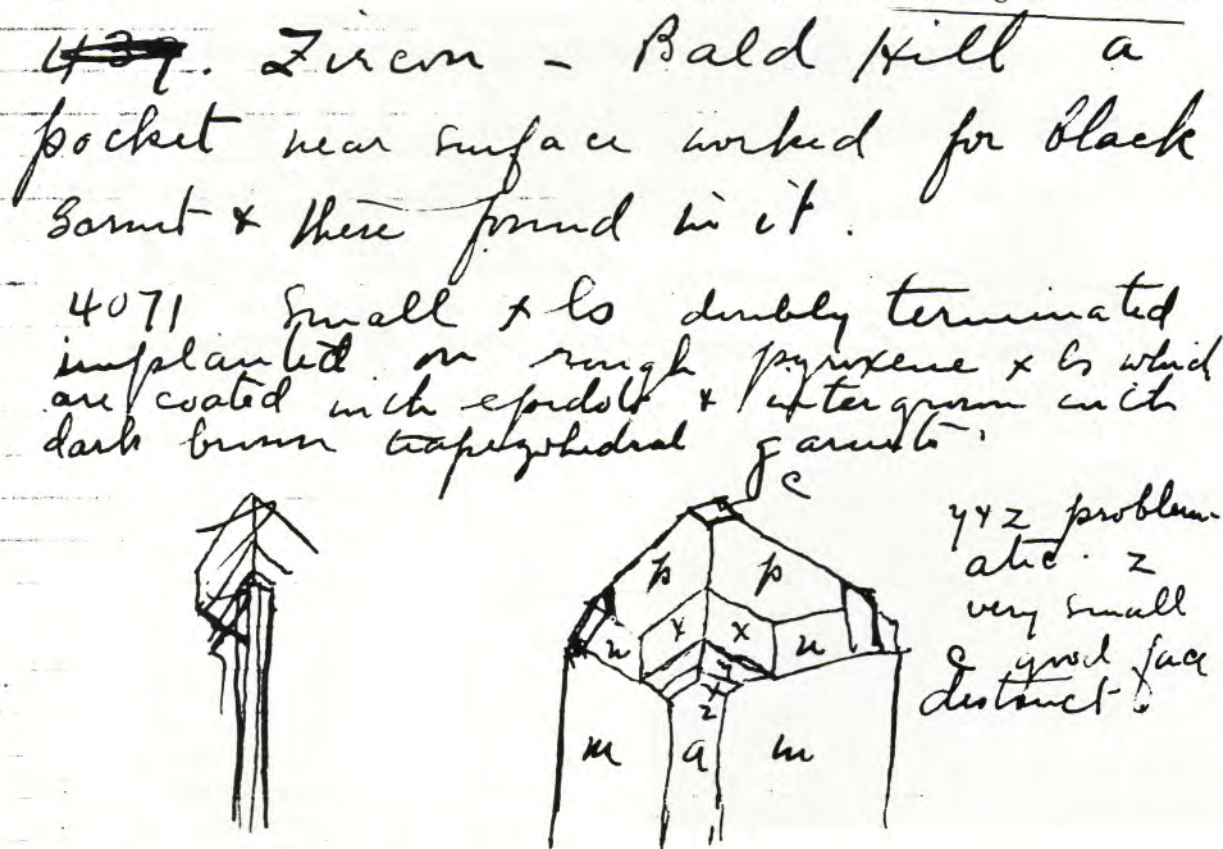 439. Zircon - Bald Hill a
pocket near surface worked for black
garnet & these found in it.
4071 Small xls doubly terminated
implanted on rough pyroxene xls which
are coated with epidote & intergrown with
dark brown trapezohedral garnets.
c
p p
x x
u u
y
x
z
m a m
y & z problem-
atic. z
very small
c good face
distinct.